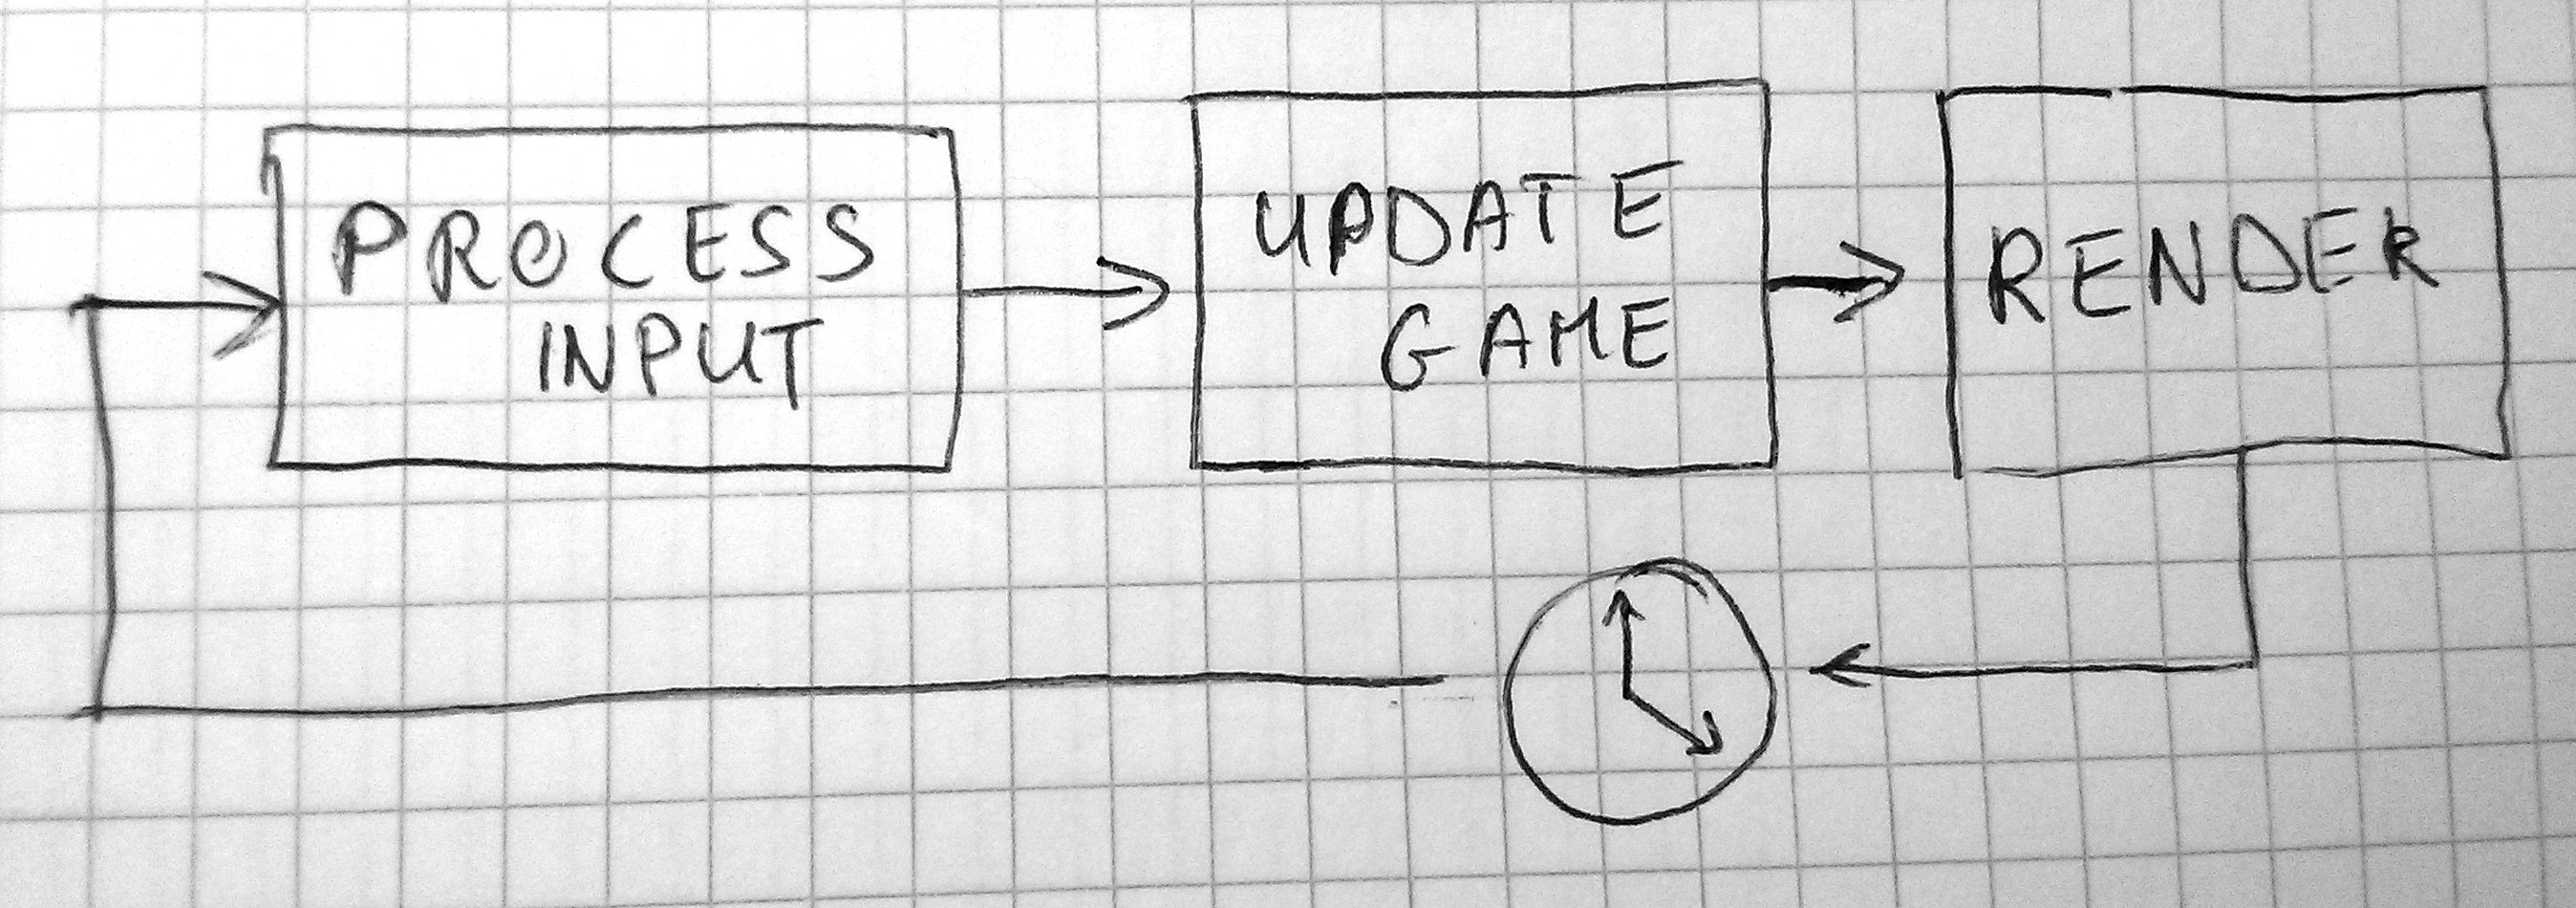 PROCESS
INPUT
UPDATE
GAME
RENDER